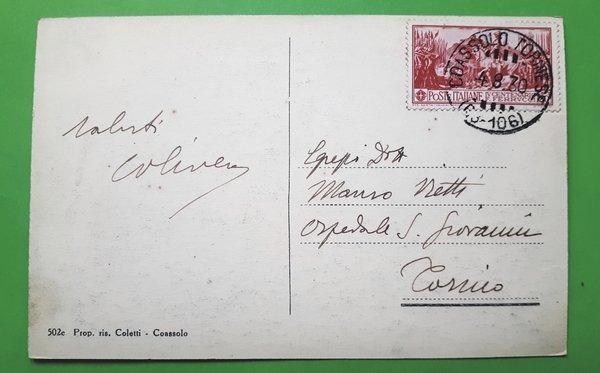 saluti
COASSOLO TORINESE
4.8.30
(106)
POSTE ITALIANE
FERRUCCI
Egregio Dott
Mauro Netti
Ospedale S. Giovanni
Torino
502c Prop. ris. Coletti - Coassolo